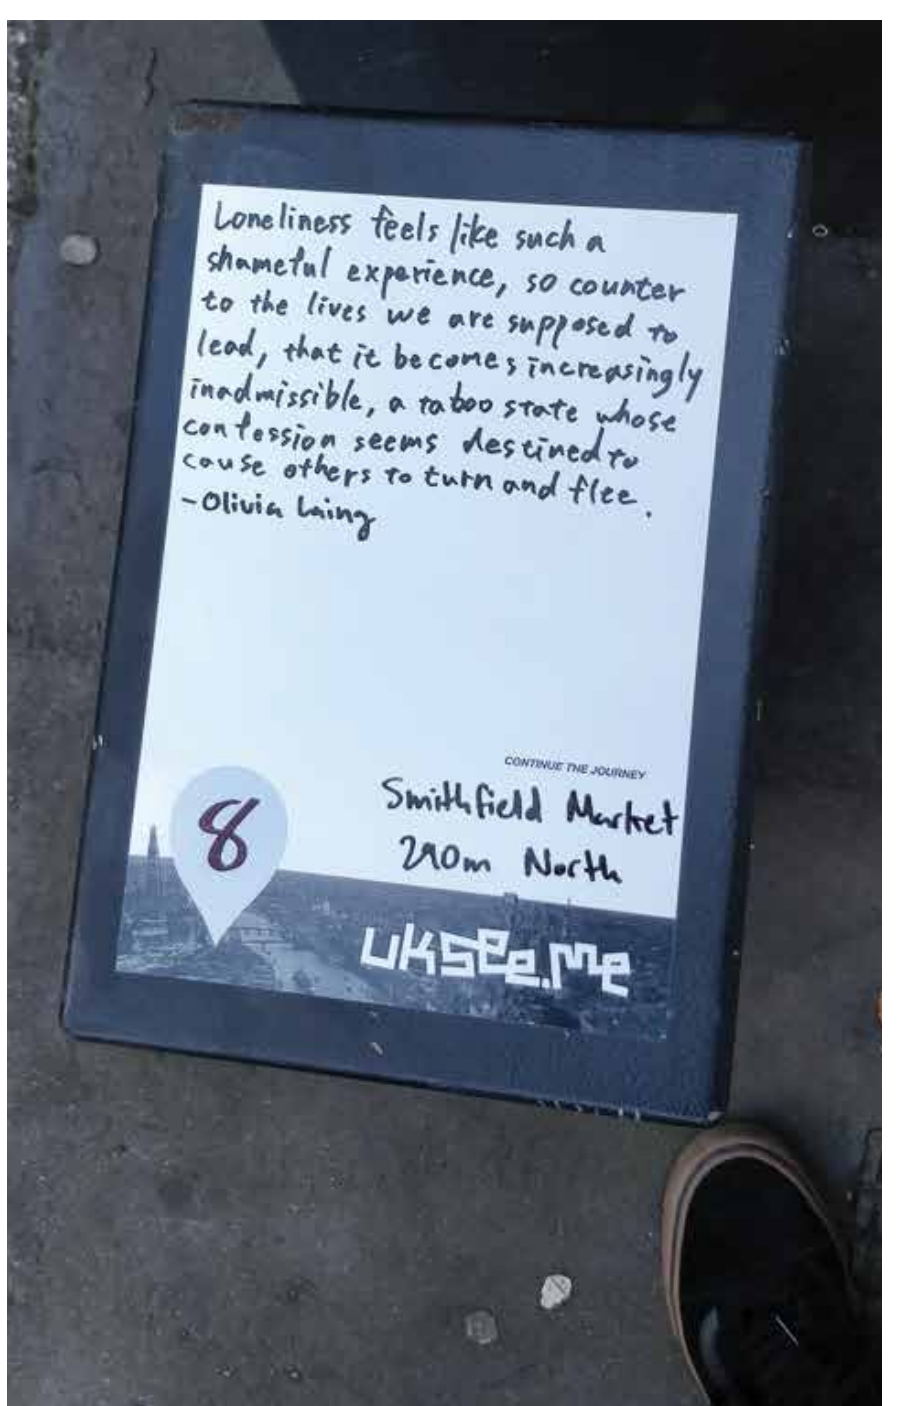 Loneliness feels like such a
shameful experience, so counter
to the lives we are supposed to
lead, that it becomes increasingly
inadmissible, a taboo state whose
confession seems destined to
cause others to turn and flee.
-Olivia Laing
CONTINUE THE JOURNEY
Smithfield Market
290m North
8
uksee.me